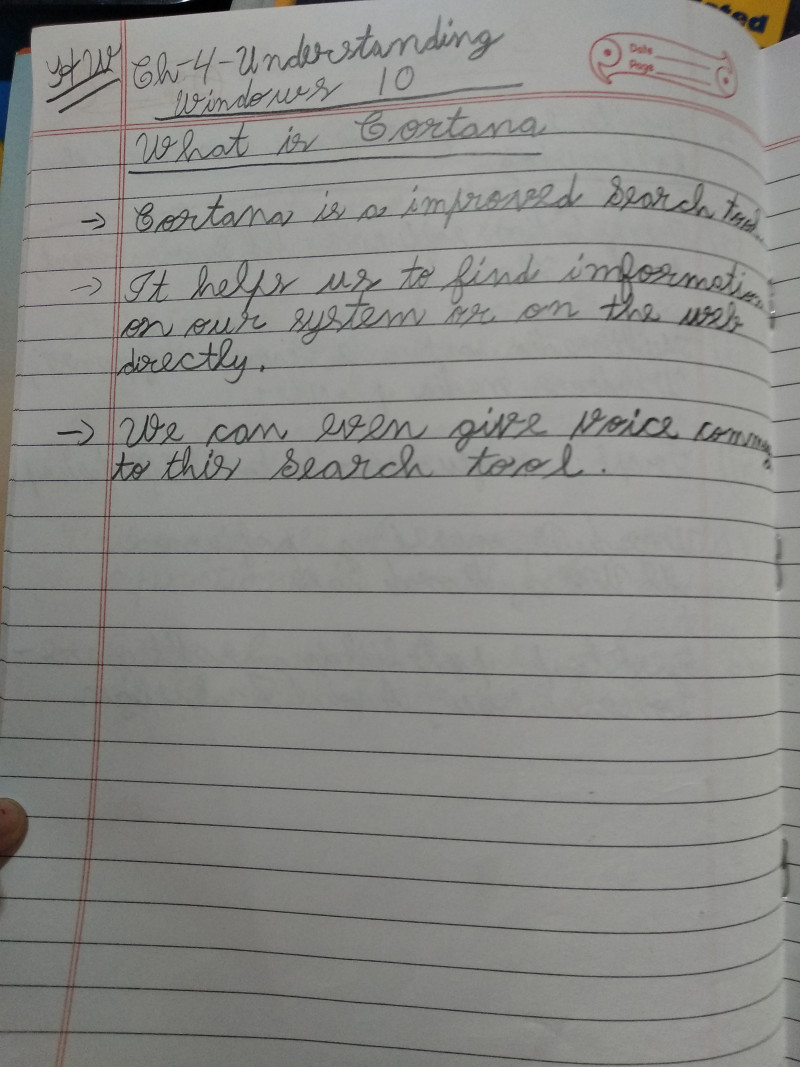 H W
Ch-4-Understanding
Windows 10
Date
Page
What is Cortana
→ Cortana is a improved search tool.
→ It helps us to find information
on our system or on the web
directly.
→ We can even give voice
to this search tool.